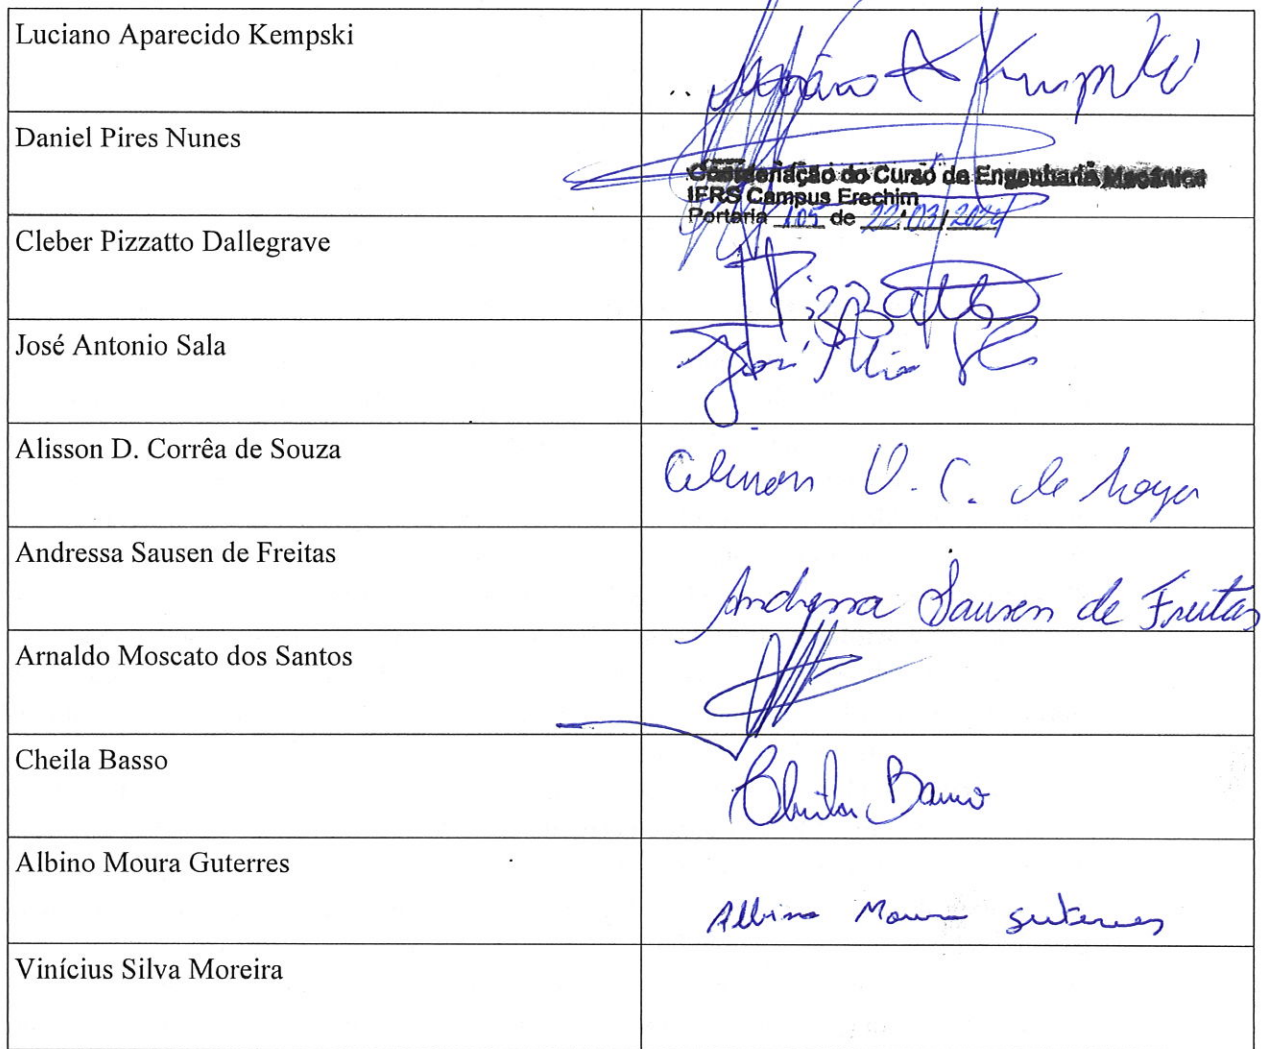 Luciano Aparecido Kempski
Luciano A Kempski
Daniel Pires Nunes
Coordenação do Curso de Engenharia Mecânica
IFRS Campus Erechim
Portaria 105 de 22/03/2024
Cleber Pizzatto Dallegrave
Pizzatto
José Antonio Sala
José
Alisson D. Corrêa de Souza
Alisson D. C. de Souza
Andressa Sausen de Freitas
Andressa Sausen de Freitas
Arnaldo Moscato dos Santos
Cheila Basso
Cheila Basso
Albino Moura Guterres
Albino Moura Guterres
Vinícius Silva Moreira